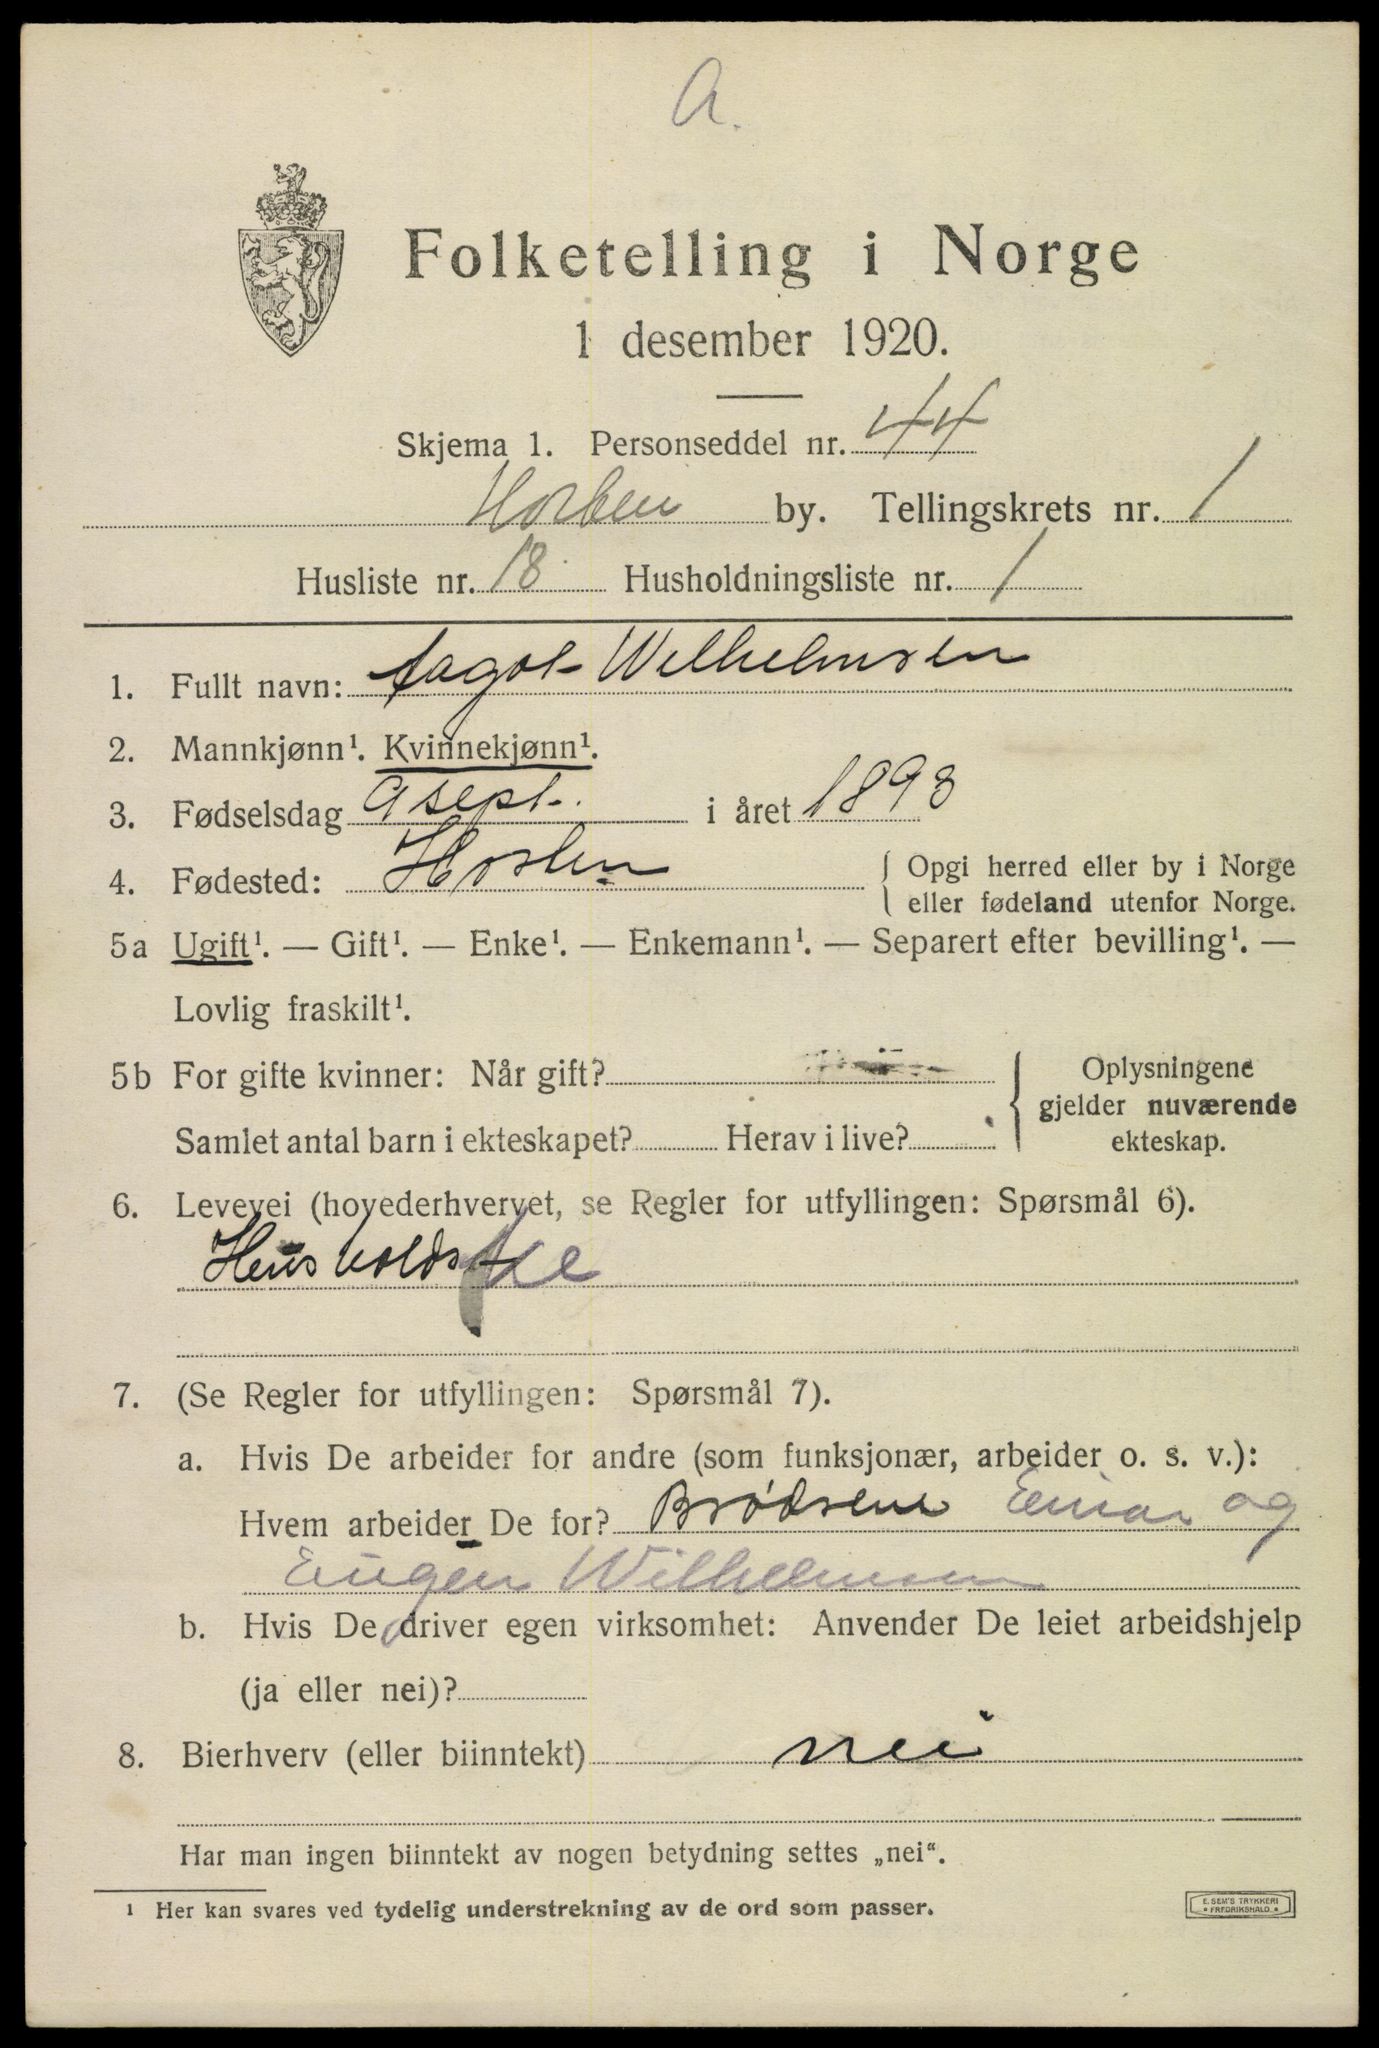 A.
Folketelling i Norge
1 desember 1920.
Skjema 1. Personseddel nr. 44
Horten by. Tellingskrets nr. 1
Husliste nr. 18. Husholdningsliste nr. 1
1. Fullt navn: Aagot Wilhelmsen
2. Mannkjønn¹. Kvinnekjønn¹.
3. Fødselsdag 9 sept. i året 1898
4. Fødested: Horten { Opgi herred eller by i Norge
eller fødeland utenfor Norge.
5a Ugift¹. — Gift¹. — Enke¹. — Enkemann¹. — Separert efter bevilling¹. —
Lovlig fraskilt¹.
5b For gifte kvinner: Når gift? { Oplysningene
gjelder nuværende
Samlet antal barn i ekteskapet? Herav i live? ekteskap.
6. Levevei (hovederhvervet, se Regler for utfyllingen: Spørsmål 6).
Husholderske
7. (Se Regler for utfyllingen: Spørsmål 7).
a. Hvis De arbeider for andre (som funksjonær, arbeider o. s. v.):
Hvem arbeider De for? Brødrene Einar og
Eugen Wilhelmsen
b. Hvis De driver egen virksomhet: Anvender De leiet arbeidshjelp
(ja eller nei)?
8. Bierhverv (eller biinntekt) nei
Har man ingen biinntekt av nogen betydning settes „nei“.
¹ Her kan svares ved tydelig understrekning av de ord som passer.
E. SEM'S TRYKKERI
FREDRIKSHALD